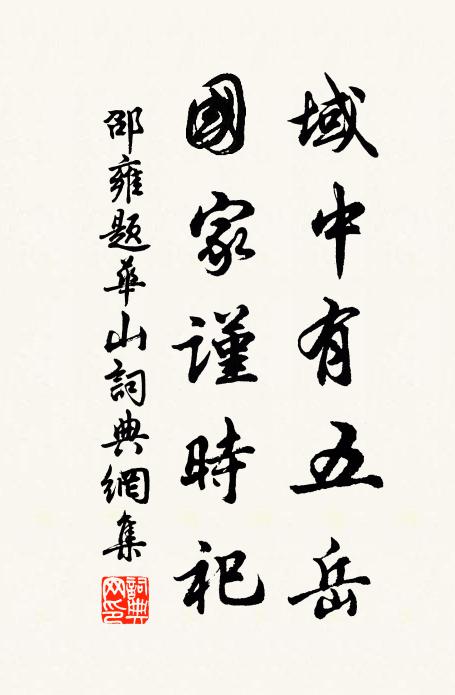 域中有五岳
國家謹時祀
邵雍題華山詞典網集
詞典网印